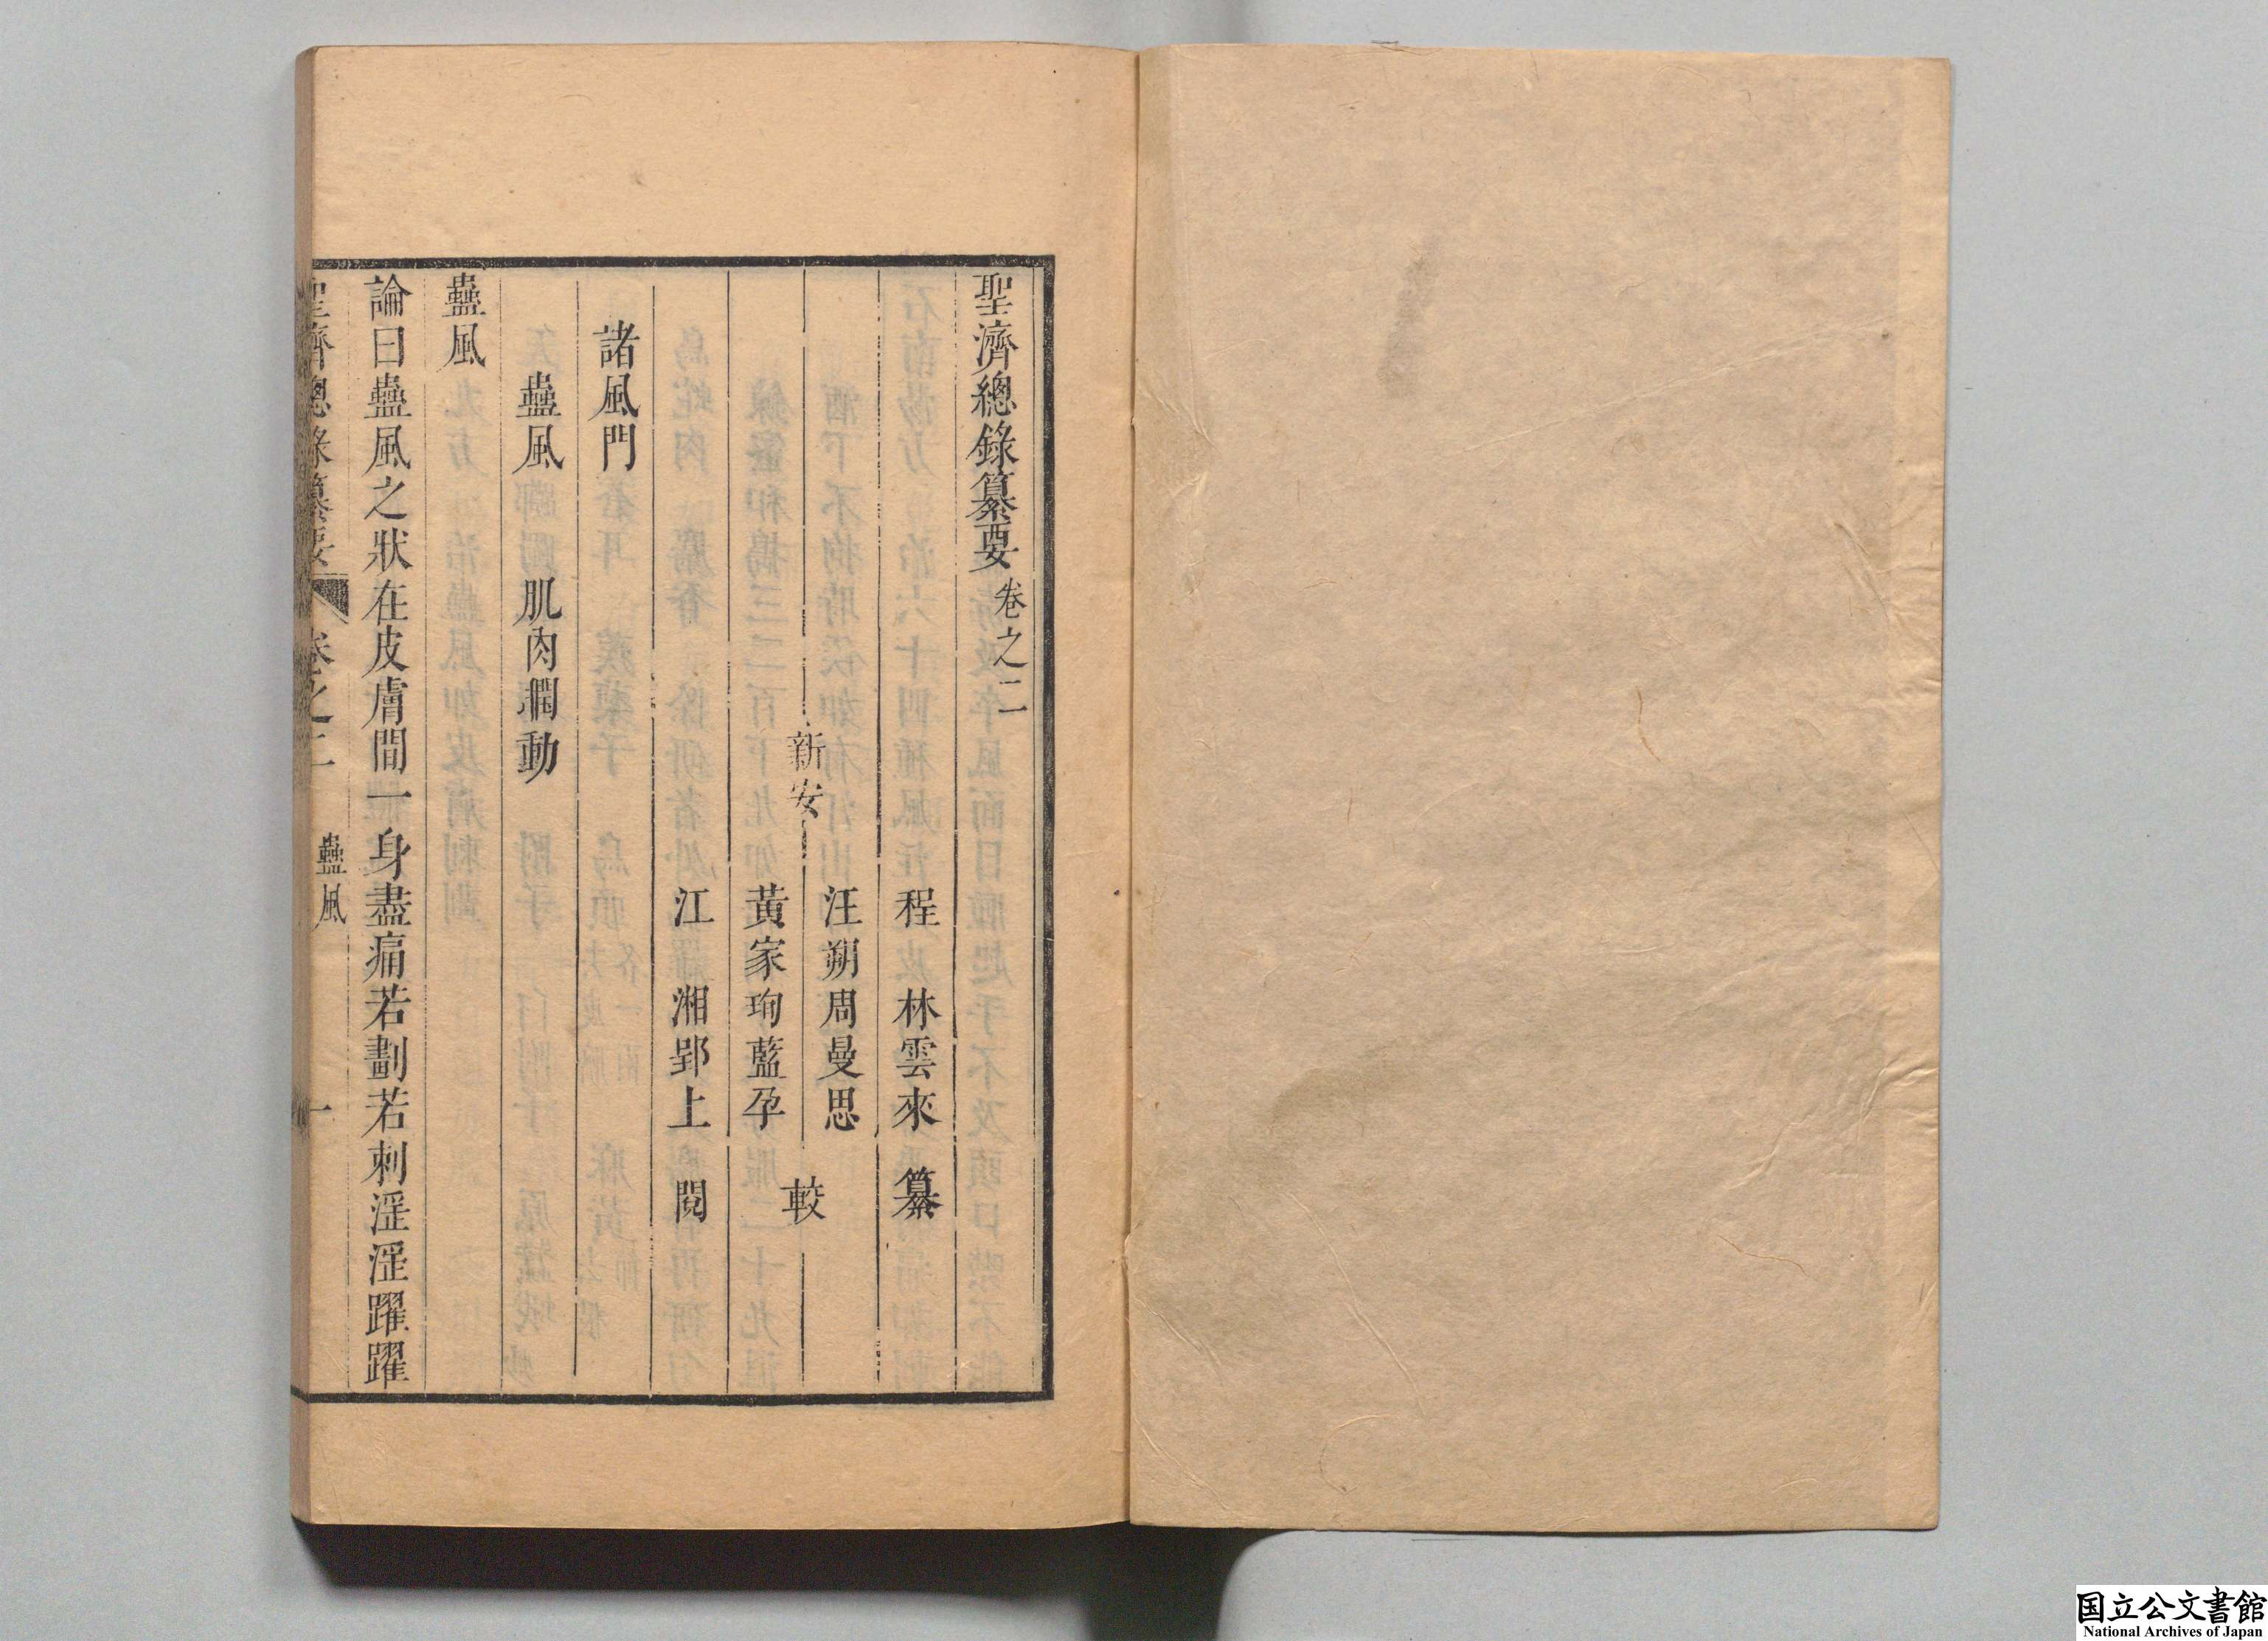 聖濟總錄纂要 卷之二
程 林雲來 纂
汪朔周曼思
新安 較
黃家珣藍孕
江 湘郢上 閱
諸風門
蠱風 肌肉瞤動
蠱風
論曰蠱風之狀在皮膚間一身盡痛若劃若刺淫淫躍躍
聖濟總錄纂要 卷之二 蠱風 一
国立公文書館
National Archives of Japan